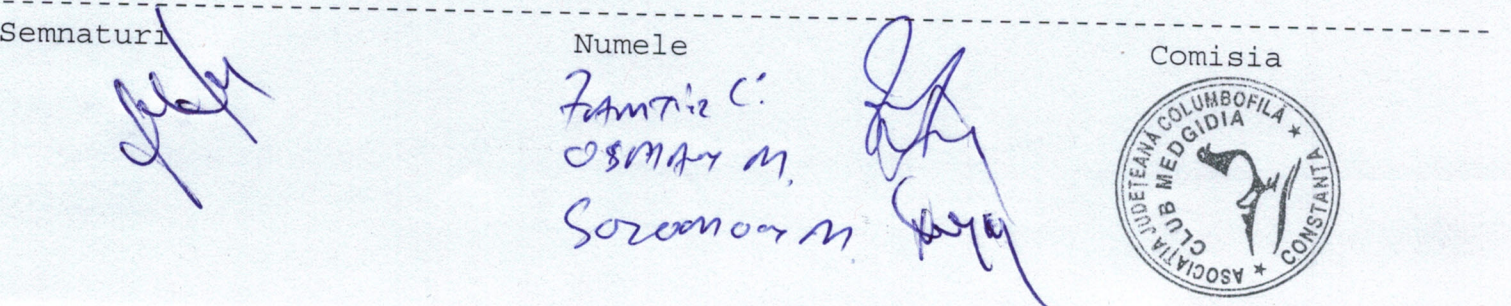 Semnaturi Numele Comisia
ZAMFIR C.
OSMAN M.
SOLOMON M
ASOCIATIA JUDETEANA COLUMBOFILĂ ★ CONSTANTA ★
CLUB MEDGIDIA